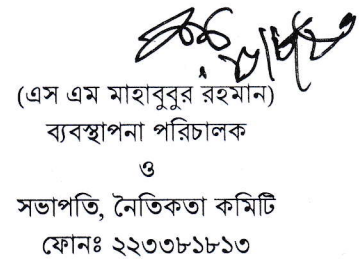 (এস এম মাহাবুবুর রহমান)
ব্যবস্থাপনা পরিচালক
ও
সভাপতি, নৈতিকতা কমিটি
ফোনঃ ২২৩৩৮১৮১৩